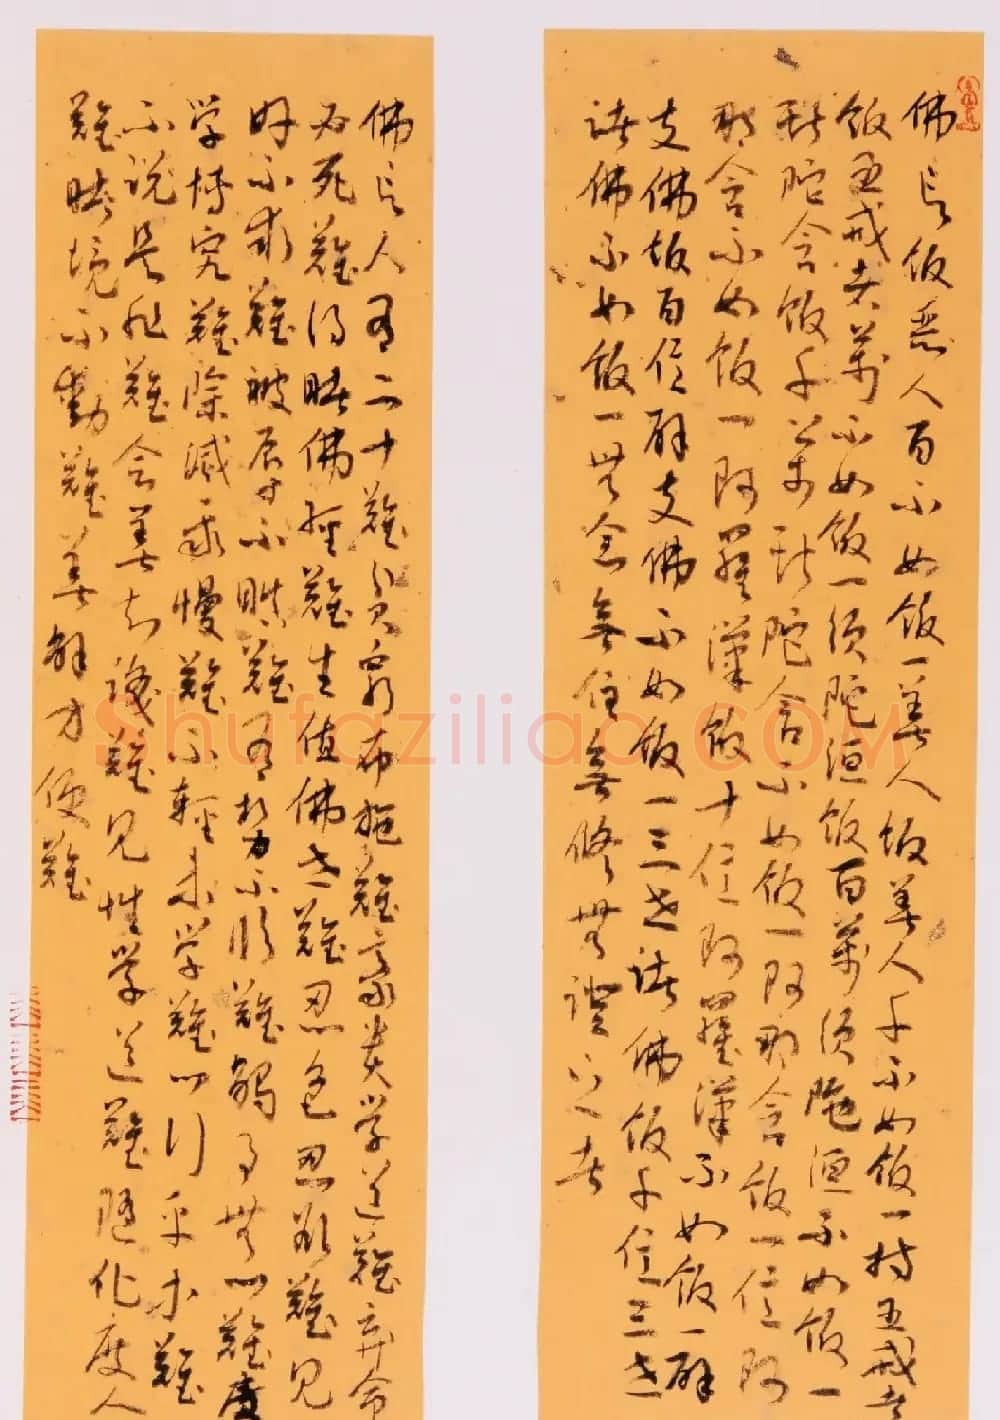 佛言飯惡人百不如飯一善人飯善人千不如飯一持五戒者
飯五戒者萬不如飯一須陀洹飯百萬須陀洹不如飯一
斯陀含飯千萬斯陀含不如飯一阿那含飯一億阿
那含不如飯一阿羅漢飯十億阿羅漢不如飯一辟
支佛飯百億辟支佛不如飯一三世諸佛飯千億三世
諸佛不如飯一無念無住無修無證之者
佛言人有二十難貧窮布施難豪貴学道難棄命
必死難得睹佛經難生值佛世難忍色忍欲難見
好不求難被辱不瞋難有勢不臨難觸事無心難廣
学博究難除滅我慢難不輕未学難心行平等難
不說是非難會善知識難見性学道難隨化度人
難睹境不動難善解方便難
Shufaziliao.COM